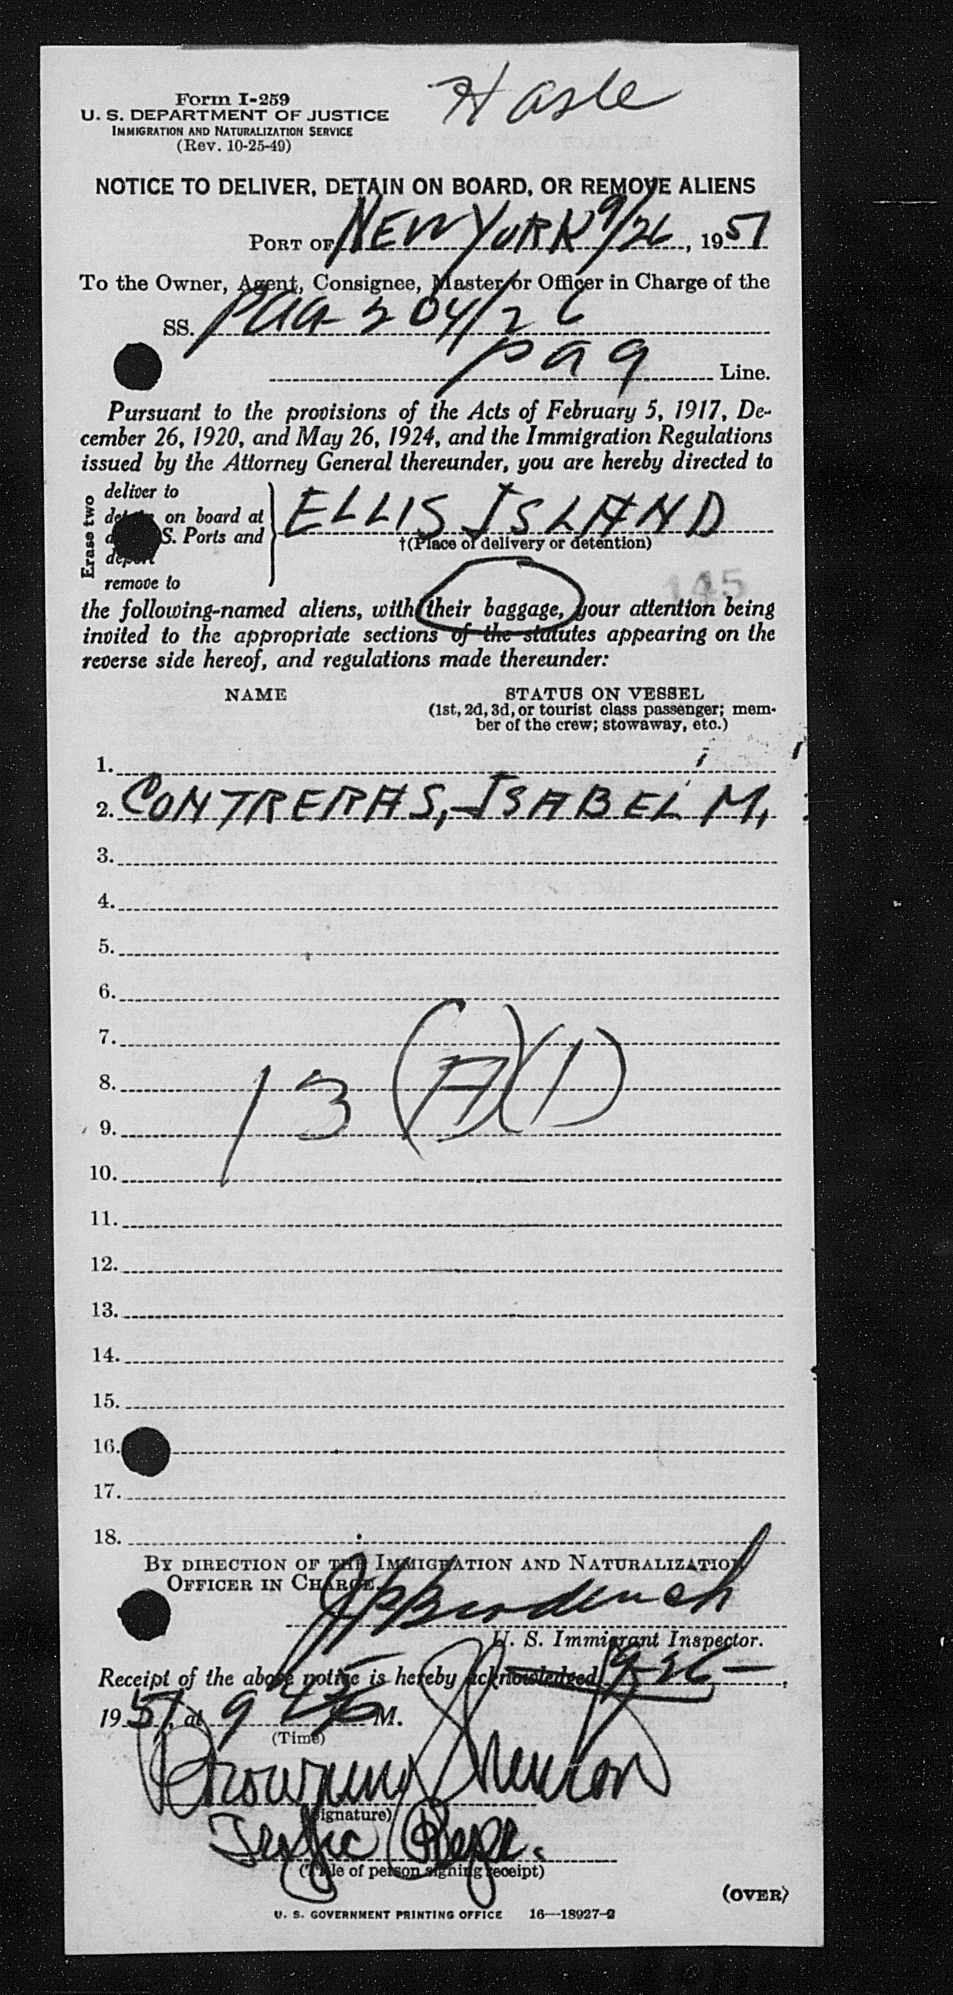 Hasle
Form I-259
U. S. DEPARTMENT OF JUSTICE
IMMIGRATION AND NATURALIZATION SERVICE
(Rev. 10-25-49)
NOTICE TO DELIVER, DETAIN ON BOARD, OR REMOVE ALIENS
PORT OF NEW YORK 9/26, 1951
To the Owner, Agent, Consignee, Master or Officer in Charge of the
SS. PAA-204/26
PAA Line.
Pursuant to the provisions of the Acts of February 5, 1917, De-
cember 26, 1920, and May 26, 1924, and the Immigration Regulations
issued by the Attorney General thereunder, you are hereby directed to
Erase two
deliver to
on board at
S. Ports and
deport
remove to
ELLIS ISLAND
†(Place of delivery or detention)
145
the following-named aliens, with their baggage, your attention being
invited to the appropriate sections of the statutes appearing on the
reverse side hereof, and regulations made thereunder:
NAME STATUS ON VESSEL
(1st, 2d, 3d, or tourist class passenger; mem-
ber of the crew; stowaway, etc.)
1.
2. CONTRERAS, ISABEL M,
3.
4.
5.
6.
7.
8.
9.
13 (A)(1)
10.
11.
12.
13.
14.
15.
16.
17.
18.
BY DIRECTION OF THE IMMIGRATION AND NATURALIZATION
OFFICER IN CHARGE.
U. S. Immigrant Inspector.
Receipt of the above notice is hereby acknowledged 9-26-,
1951, at 9 M.
(Time)
(Signature)
(Title of person signing receipt)
(OVER)
U. S. GOVERNMENT PRINTING OFFICE 16—18927-2